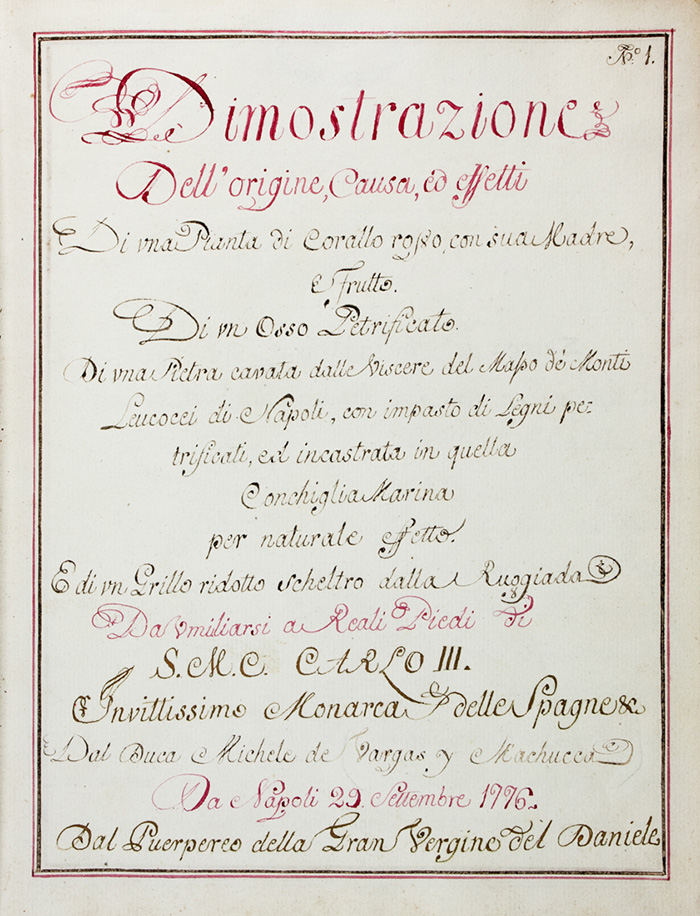 N.º 1.
Dimostrazione
Dell'origine, Causa, ed effetti
Di vna Pianta di Corallo rosso, con sua Madre,
e Frutto.
Di vn Osso Petrificato.
Di vna Pietra cavata dalle Viscere del Masso de' Monti
Leucocei di Napoli, con impasto di Legni pe:
trificati, ed incastrata in quella
Conchiglia Marina
per naturale effetto.
E di vn Grillo ridotto scheltro dalla Ruggiada
Da Vmiliarsi a Reali Piedi di
S. M. C. CARLO III.
Invittissimo Monarca delle Spagne &
Dal Duca Michele de Vargas y Machucca
Da Napoli 29 Settembre 1776.
Dal Puerpereo della Gran Vergine del Daniele